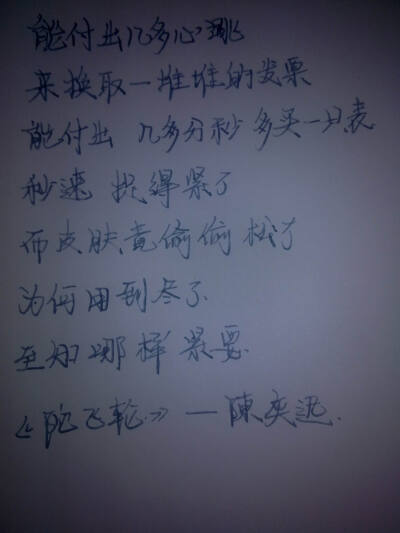 能付出几多心跳
来换取一堆堆的发票
能付出 几多分秒 多买一只表
秒速 捉得紧了
而皮肤竟偷偷松了
为何用到尽了
至知哪样紧要
《陀飞轮》— 陳奕迅.